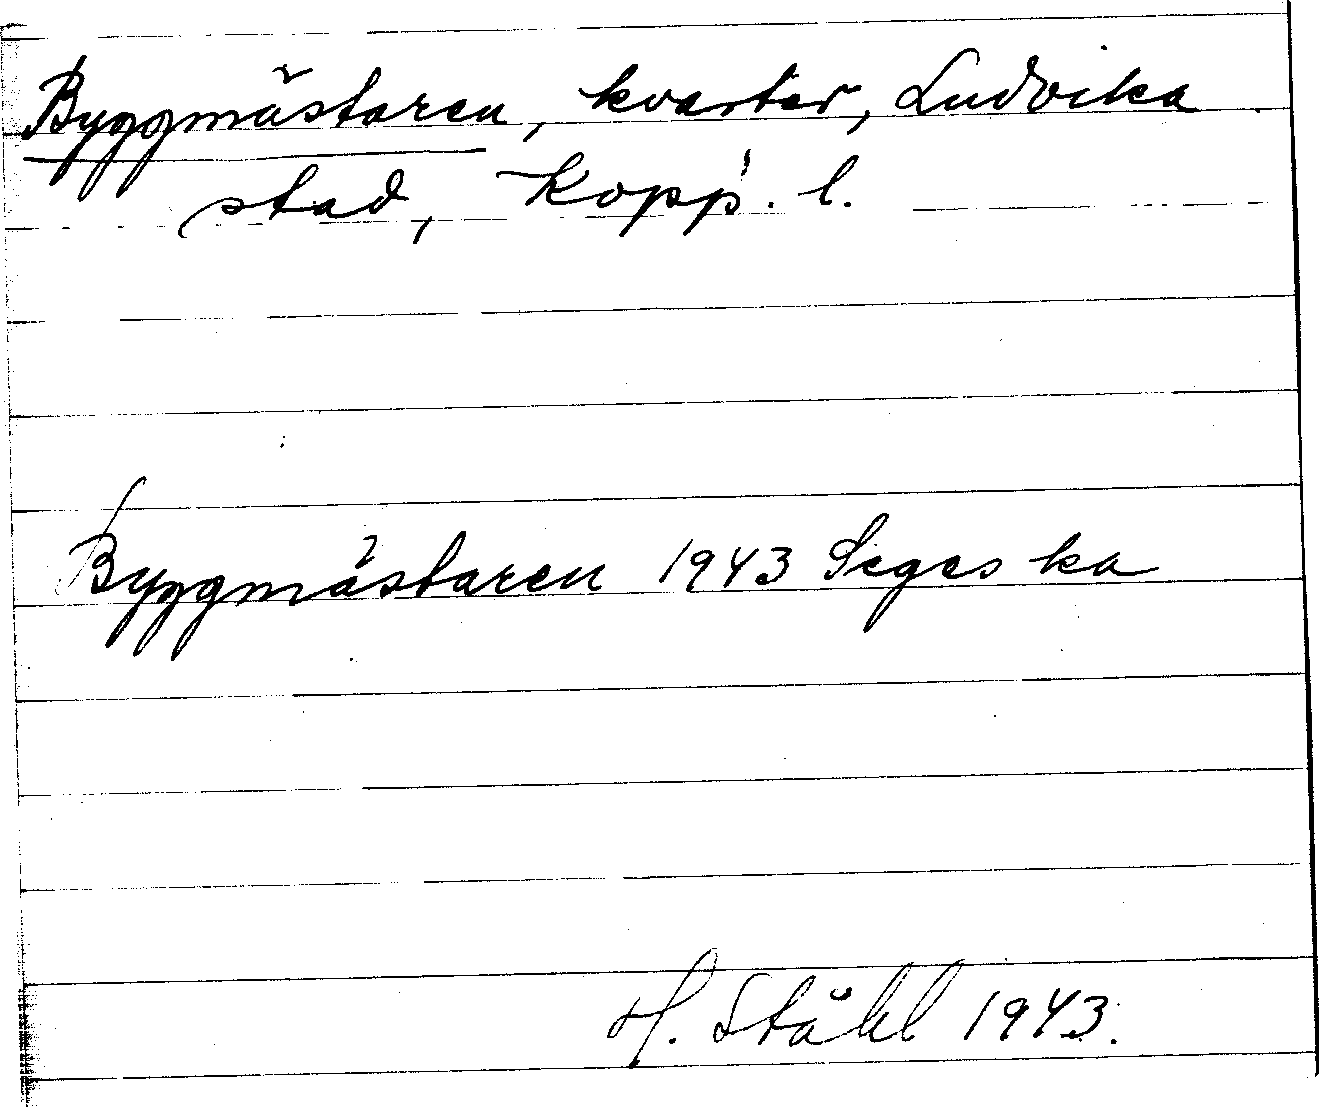 Byggmästaren, kvarter, Ludvika
stad, Kopp. l.
Byggmästaren 1943 Seges ka
H. Ståhl 1943.